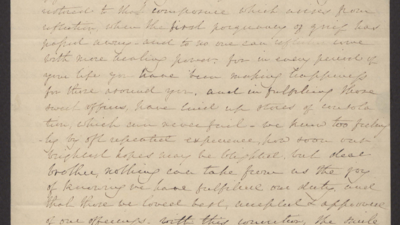 to that composure which arises from
reflection when the first poignancy of grief has
passed away - and to no one can reflection come
with more healing power. for in every period of
your life you have been making happiness
for those around you, and in fulfilling those
sweet offices, have laid up stores of consola
tion, which can never fail - we know too
by oft repeated experience, how soon our
brightest hopes may be blighted, but dear
brother, nothing can take from us the joy
of knowing we have fulfilled our duty, and
that those we loved best, accepted & approved
of our offerings. with this conviction, the